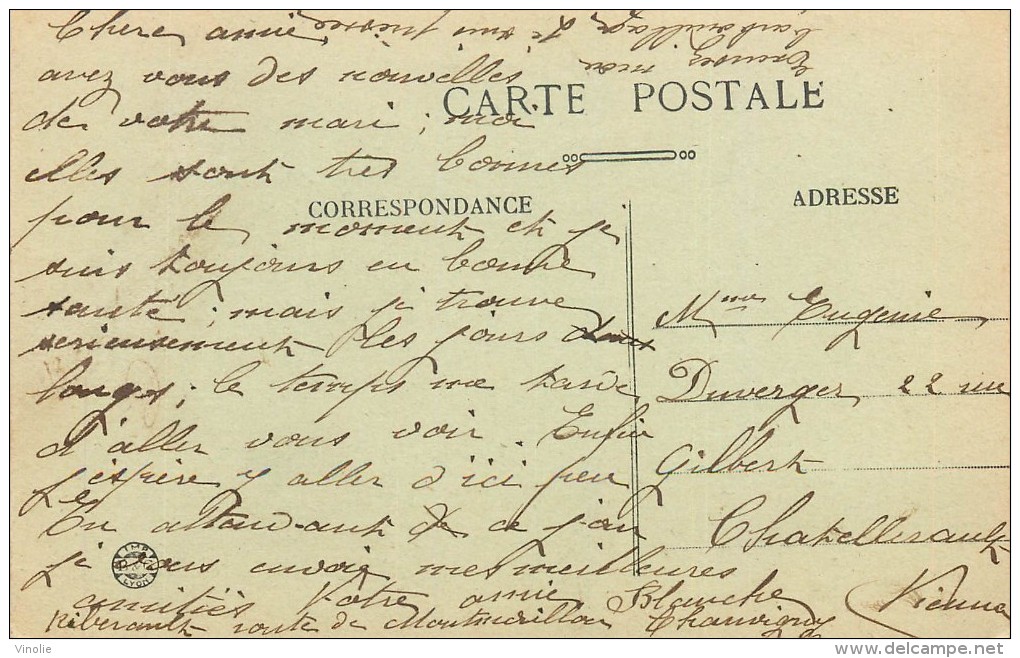 Chere amie,
avez vous des nouvelles
de votre mari ; moi
elles sont tres bonnes
pour le moment et je
suis toujours en bonne
santé ; mais je trouve
serieusement les jours
longs ; le temps me tarde
d'aller vous voir. Enfin
j'espère y aller d'ici peu
En attendant ce jour
je vous envoie mes meilleures
amitiés Votre amie Blanche
Riberault route de Montmorillon Chauvigny
excusez mon
barbouillage je suis pressée
CARTE POSTALE
CORRESPONDANCE
ADRESSE
Mme Eugenie
Duverger 22 rue
Gilbert
Chatellerault
Vienne
IMP.
LYON
delcampe.net